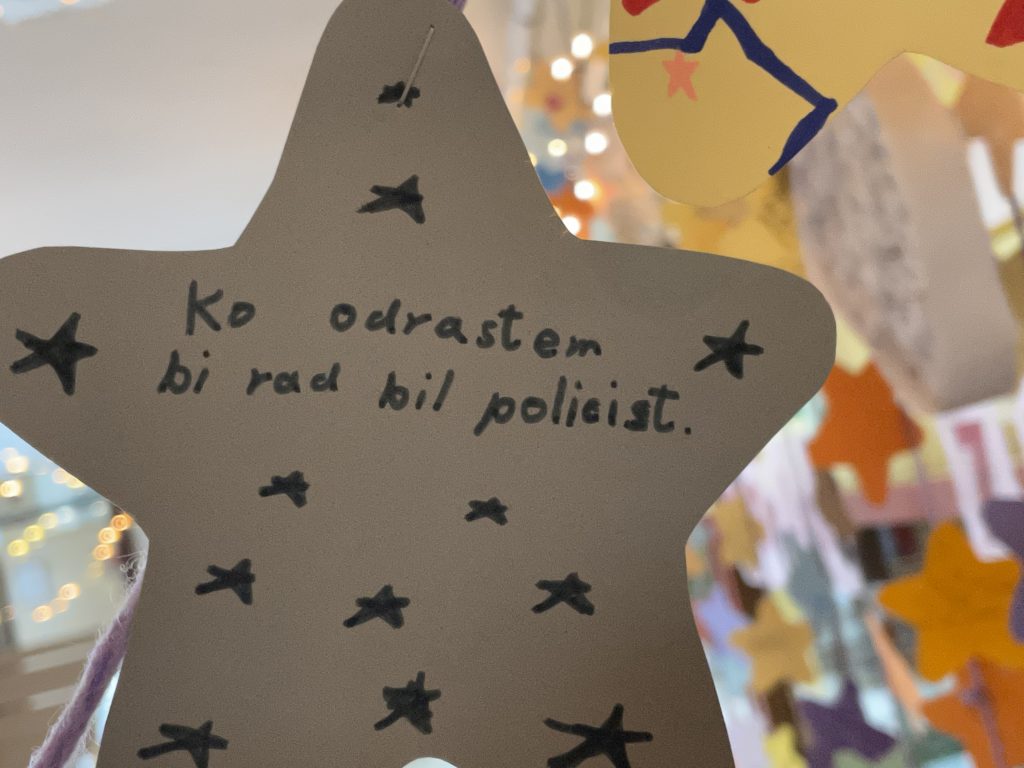 Ko odrastem
bi rad bil policist.